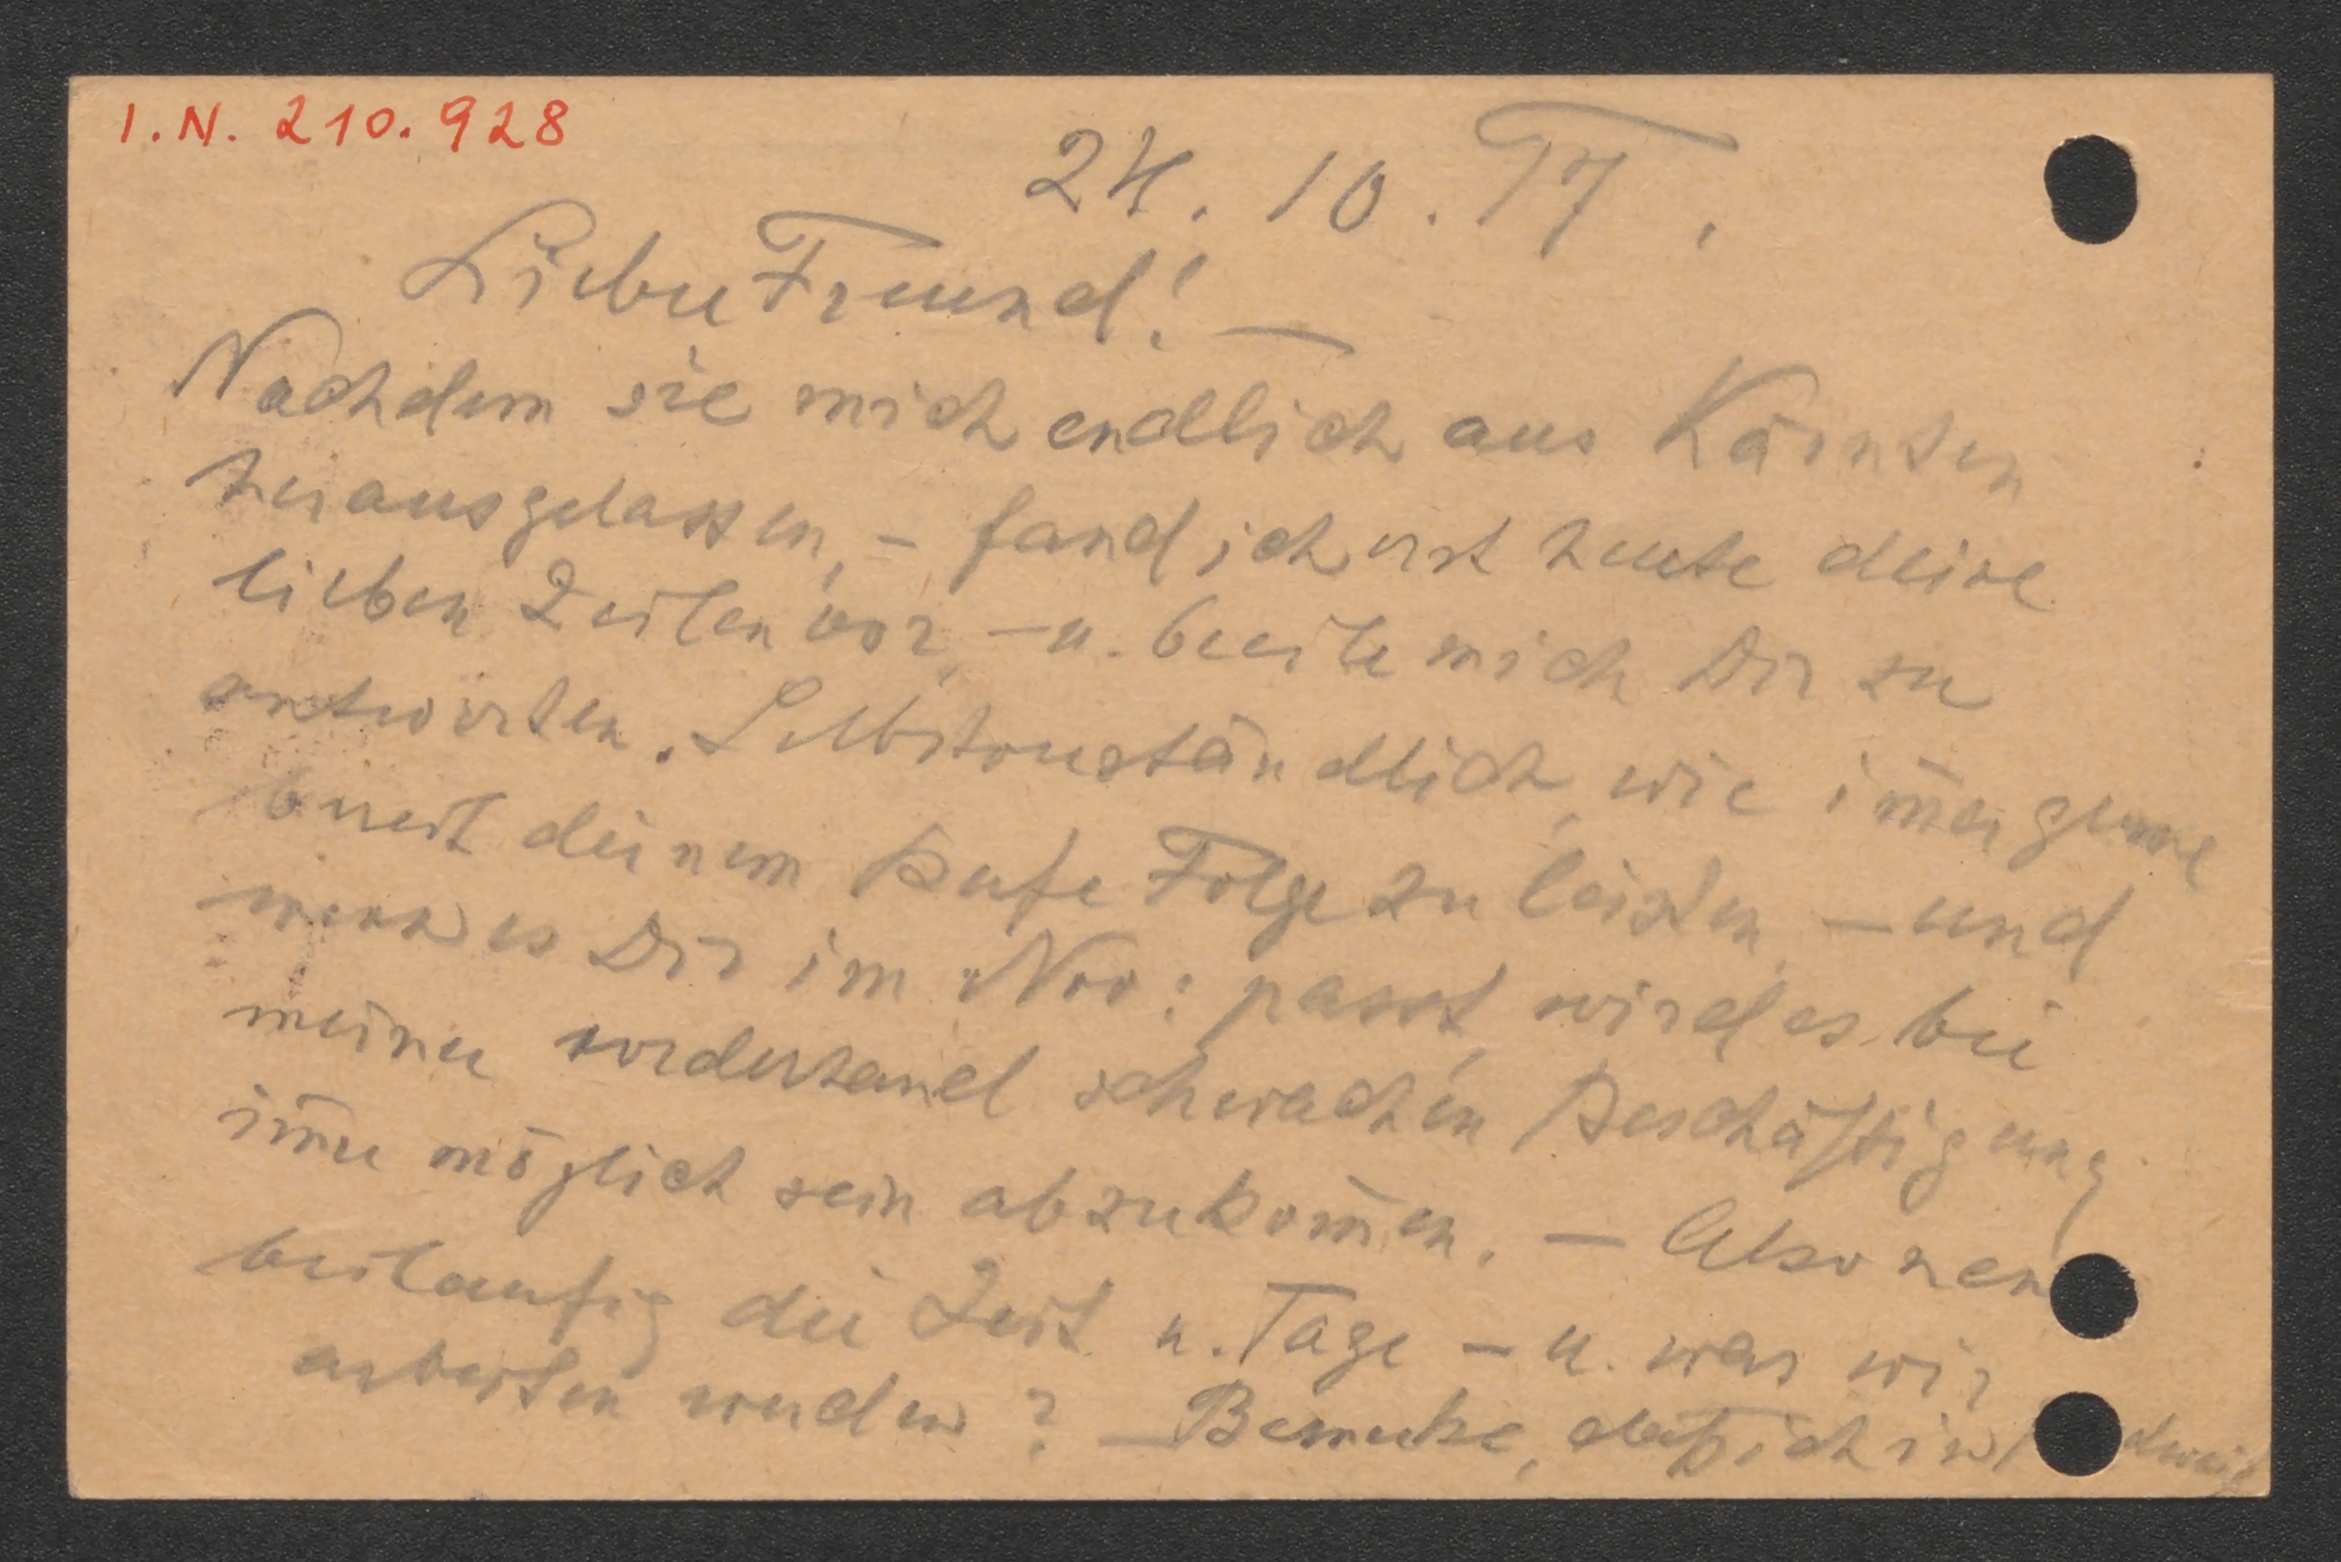 I.N. 210.928
24. 10. 17.
Lieber Freund! —
Nachdem sie mich endlich aus Kärnten
herausgelassen, – fand ich erst heute deine
lieben Zeilen vor, – u. beeile mich Dir zu
antworten. Selbstverständlich, wie im̄er gerne
bereit deinem Rufe Folge zu leisten, – und
wenn es Dir im Nov: passt, wird es bei
meiner vorderhand schwachen Beschäftigung
im̄er möglich sein abzukom̄en. – Also nen
beiläufig die Zeit u. Tage – u. was wir
arbeiten werden? – Bemerke, daß ich